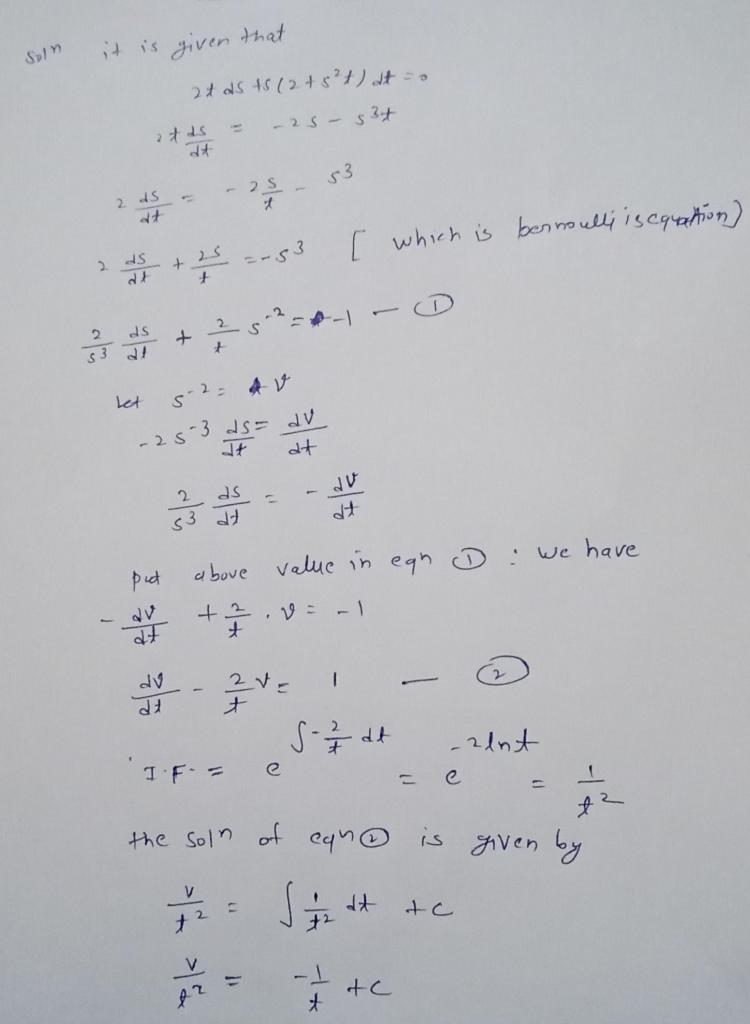 Soln it is given that
2t ds + s(2+s²t) dt = 0
2t ds/dt = -2s - s³t
2 ds/dt = -2s/t - s³
2 ds/dt + 2s/t = -s³ [ which is bernoulli is equation)
2/s³ ds/dt + 2/t s⁻² = -1 — ①
Let s⁻² = v
-2s⁻³ ds/dt = dv/dt
2/s³ ds/dt = - dv/dt
put above value in eqn ① : we have
- dv/dt + 2/t . v = -1
dv/dt - 2/t v = 1 — ②
I.F. = e^∫-2/t dt = e^-2lnt = 1/t²
the soln of eqn ② is given by
v/t² = ∫ 1/t² dt + c
v/t² = -1/t + c